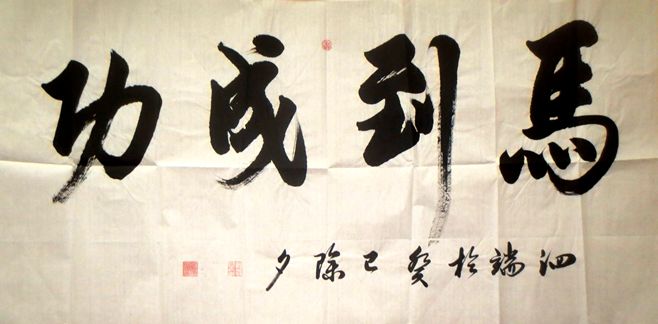 馬到成功
泗端於癸巳除夕